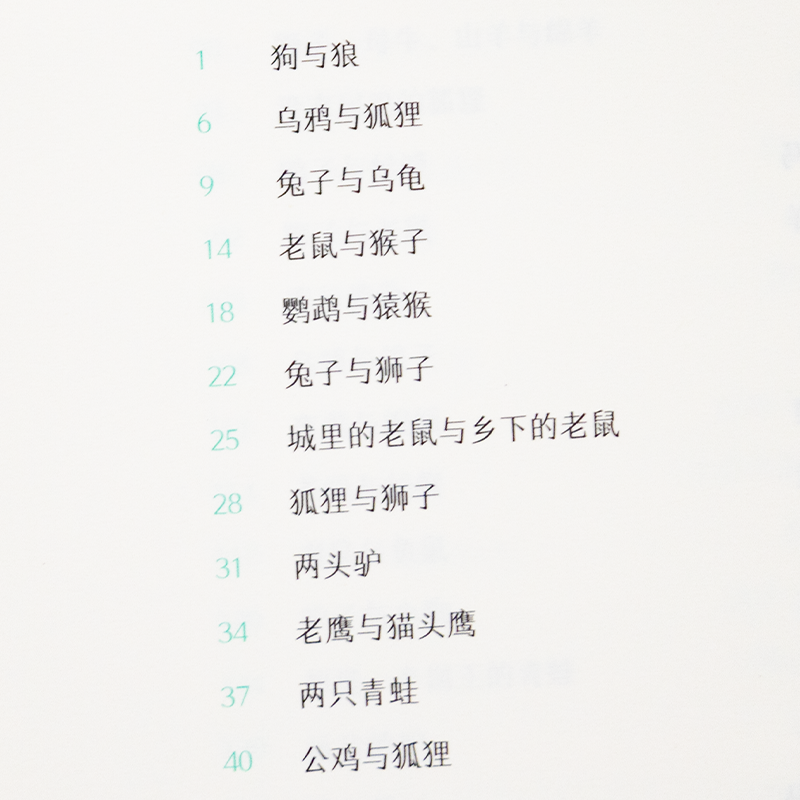 1 狗与狼
6 乌鸦与狐狸
9 兔子与乌龟
14 老鼠与猴子
18 鹦鹉与猿猴
22 兔子与狮子
25 城里的老鼠与乡下的老鼠
28 狐狸与狮子
31 两头驴
34 老鹰与猫头鹰
37 两只青蛙
40 公鸡与狐狸